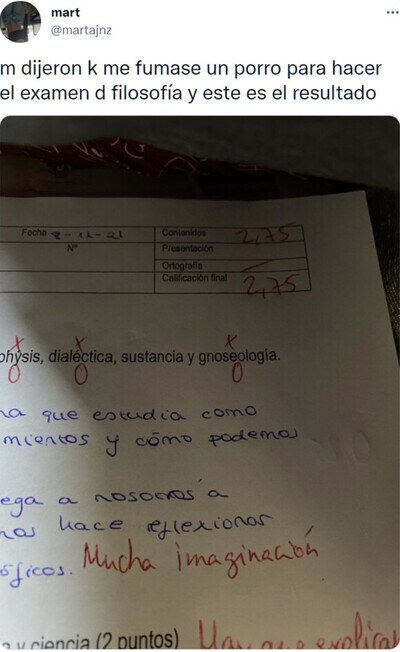 mart
@martajnz
m dijeron k me fumase un porro para hacer
el examen d filosofía y este es el resultado
Fecha 9-12-21
Contenidos 2,75
Nº
Presentación
Ortografía
Calificación final 2,75
physis, dialéctica, sustancia y gnoseología.
0 0 0
na que estudia como
mientos y cómo podemos
ega a nosotros a
nos hace reflexionar
óficos. Mucha imaginación
a y ciencia (2 puntos) Hay que explicar